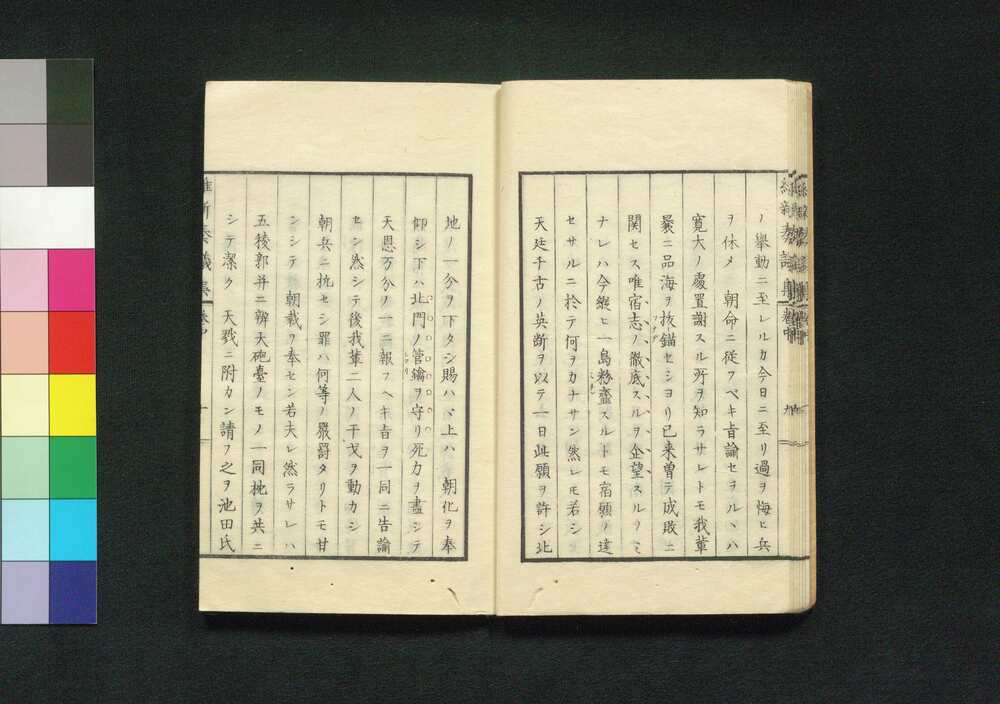 ノ擧動ニ至レルカ今日ニ至リ過ヲ悔ヒ兵
ヲ休メ 朝命ニ従フベキ旨論セヲルヽハ
寛大ノ處置謝スル所ヲ知ラサレトモ我輩
曩ニ品海ヲ抜錨セシヨリ已来曽テ成敗ニ
関セス唯宿志ノ徹底スルヲ企望スルノミ
ナレハ今縦ヒ一島粉齏スルトモ宿願ノ達
セサルニ於テ何ヲカナサン然レモ若シ
天廷千古ノ英断ヲ以テ一日此願ヲ許シ北
地ノ一分ヲ下タシ賜ハヽ上ハ 朝化ヲ奉
仰シ下ハ北門ノ管鑰ヲ守リ死力ヲ盡シテ
天恩万分ノ一ニ報フヘキ旨ヲ一同ニ告諭
セン然シテ後我輩二人ノ干戈ヲ動カシ
朝兵ニ抗セシ罪ハ何等ノ嚴罰タリトモ甘
ンシテ 朝裁ヲ奉セン若夫レ然ラサレハ
五稜郭并ニ辨天砲臺ノモノ一同枕ヲ共ニ
シテ潔ク 天戮ニ附カン請フ之ヲ池田氏